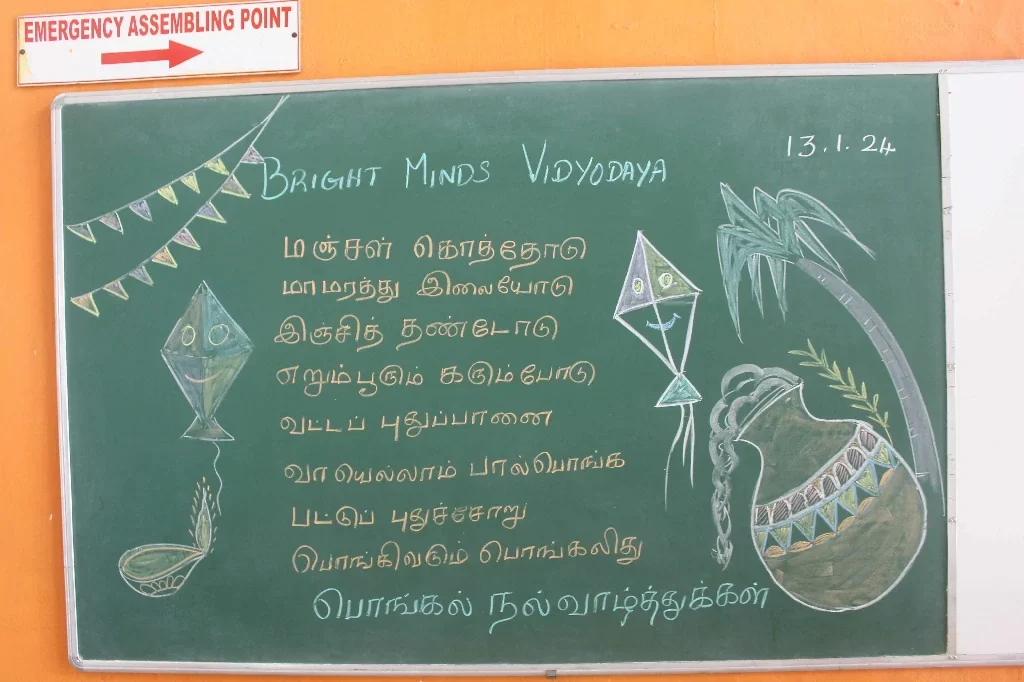 EMERGENCY ASSEMBLING POINT
BRIGHT MINDS VIDYODAYA
13.1.24
மஞ்சள் கொத்தோடு
மாமரத்து இலையோடு
இஞ்சித் தண்டோடு
எறும்பூரும் கரும்போடு
வட்டப் புதுப்பானை
வாயெல்லாம் பால்பொங்க
பட்டுப் புதுச்சோறு
பொங்கிவரும் பொங்கலிது
பொங்கல் நல்வாழ்த்துக்கள்